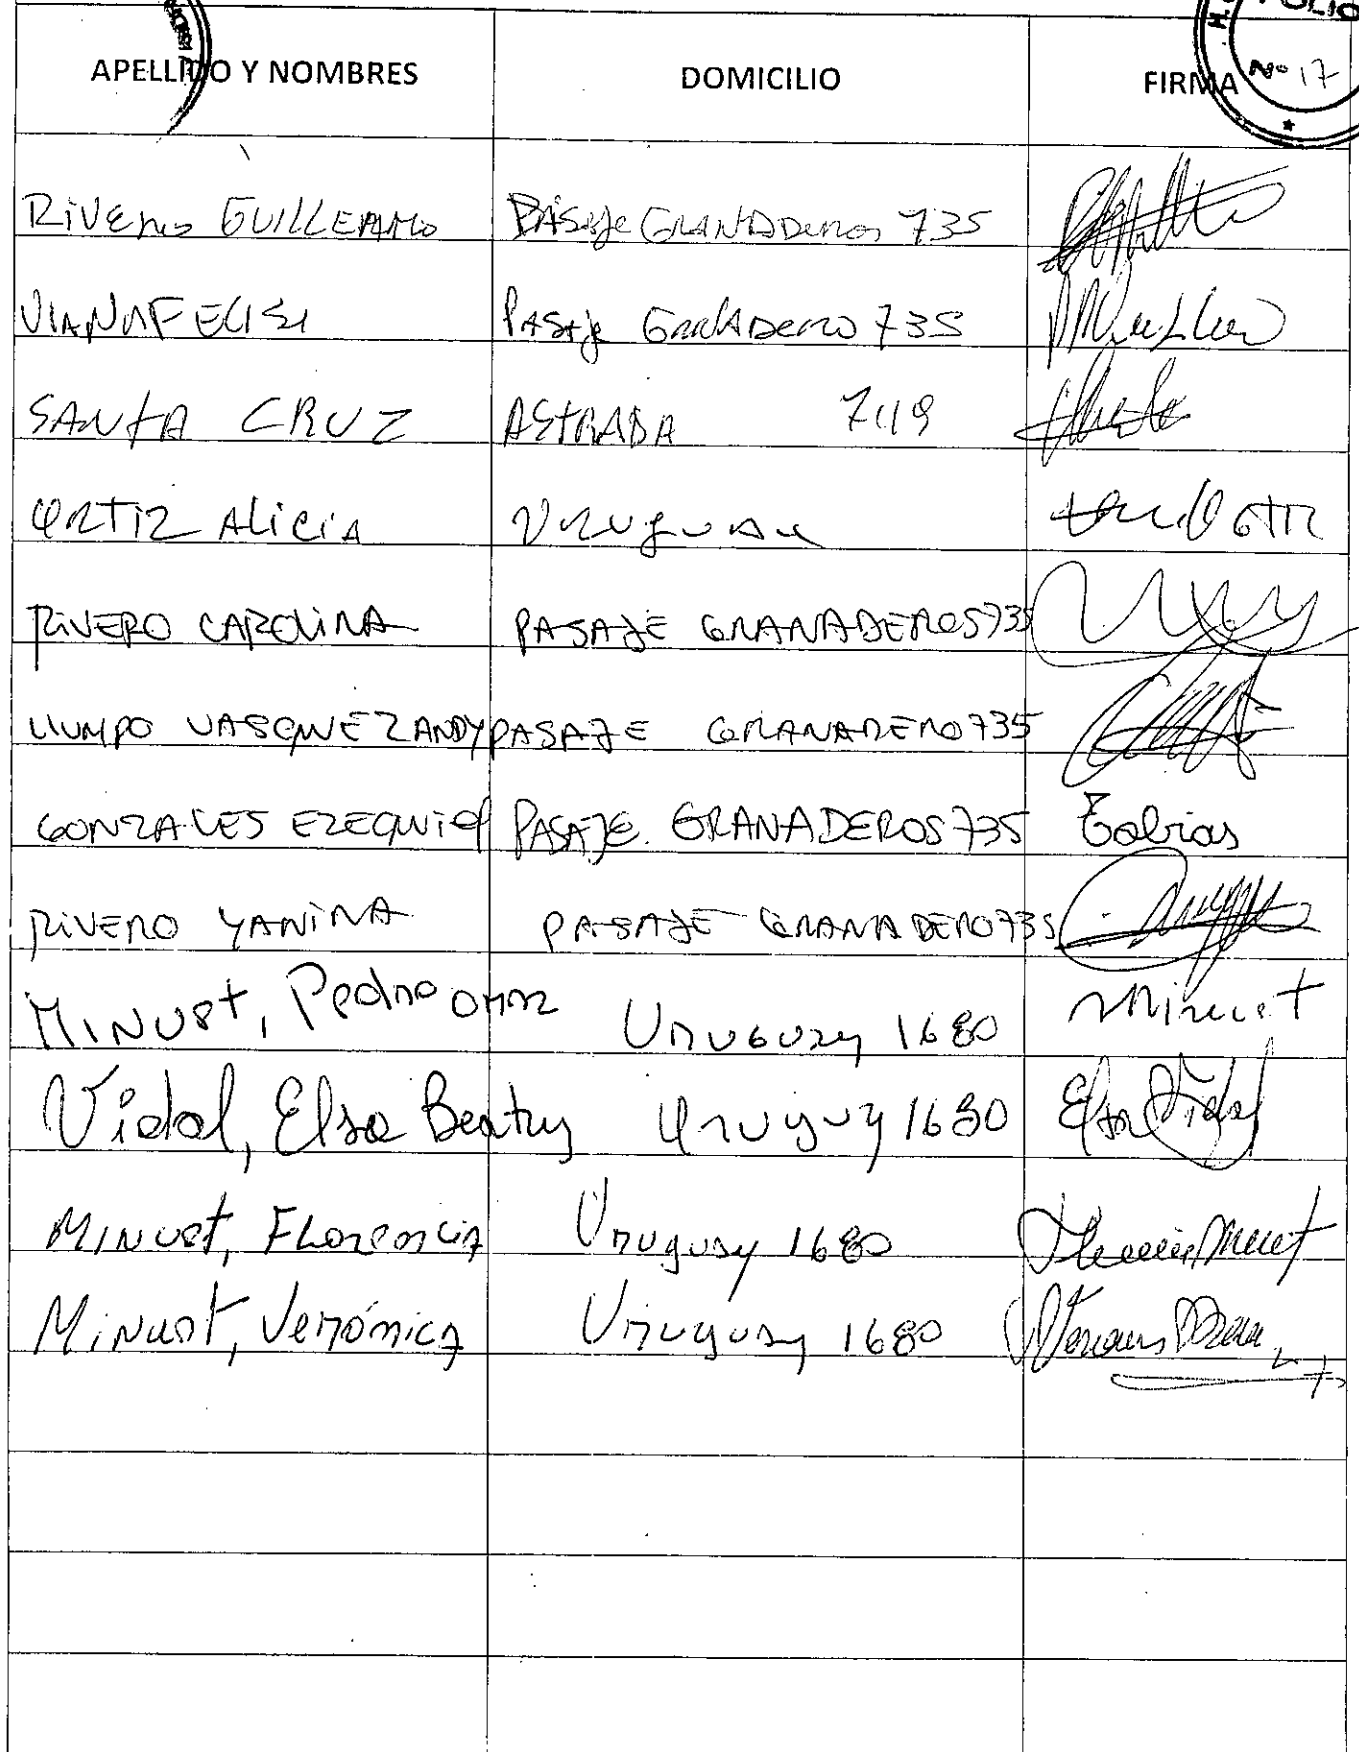 APELLIDO Y NOMBRES DOMICILIO FIRMA
FOLIO
Nº 17
RIVERO GUILLERMO PASAJE GRANADEROS 735
PASAJE GRANADERO 735
SANTA CRUZ ASTRADA
ORTIZ ALICIA URUGUAY
RIVERO CAROLINA PASAJE GRANADEROS 735
VASQUEZ ANDY PASAJE GRANADERO 735
GONZALES EZEQUIEL PASAJE GRANADEROS 735 Tobias
RIVERO YANINA PASAJE GRANADERO 735
MINUET, Pedro OMAR URUGUAY 1680 Minuet
Vidal, Elsa Beatriz Uruguay 1680 Elsa Vidal
MINUET, FLORENCIA Uruguay 1680
MINUET, Verónica Uruguay 1680